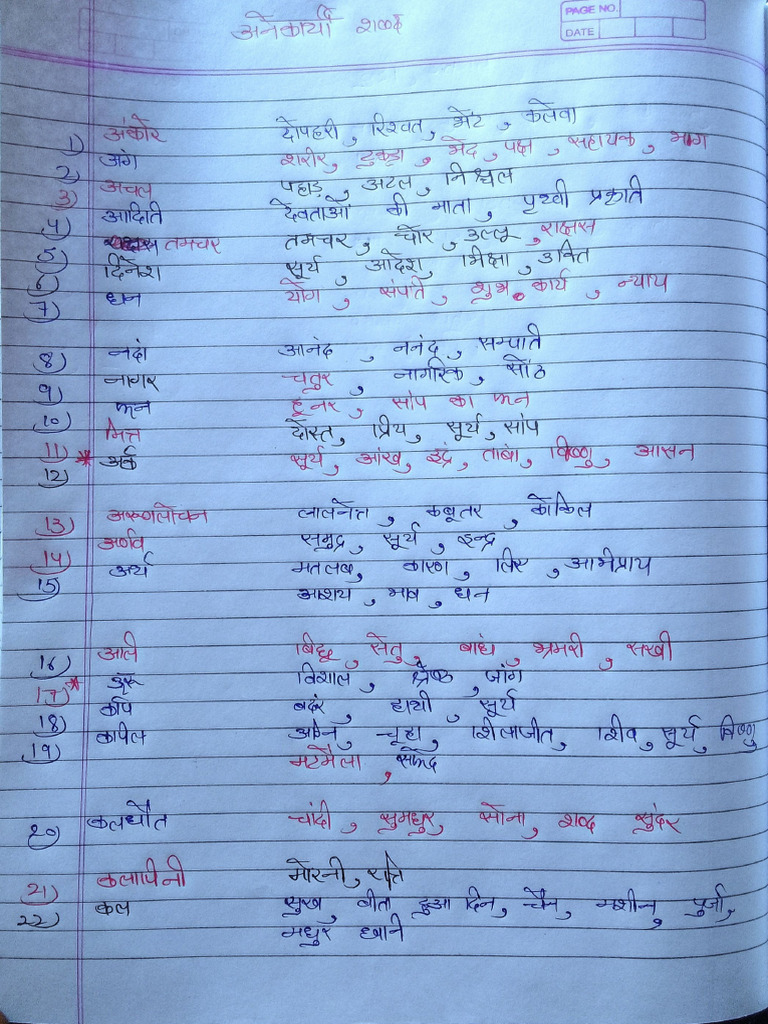 अनेकार्थी शब्द
PAGE NO.
DATE
1) अंकोर दोपहरी, रिश्वत, भेंट, कलेवा
2) अंग शरीर, टुकडा, भेद, पक्ष, सहायक, भाग
3) अचल पहाड़, अटल, निश्चल
4) आदिति देवताओं की माता, पृथ्वी प्रकृति
5) तमचर तमचर, चोर, उल्लू, राक्षस
6) दिनेश सूर्य, आदेश, भिक्षा, उक्ति
7) धन योग, संपति, शुभ कार्य, न्याय
8) नदां आनंद, ननंद, सम्पाति
9) नागर चतुर, नागरिक, सोंठ
10) फन हूनर, सांप का फन
11) मित्त दोस्त, प्रिय, सूर्य, सांप
12) * अर्क सूर्य, आंख, इंद्र, ताबां, विष्णु, आसन
13) अरुणलोचन लालनेत्त, कबूतर, कोकिल
14) अर्णव समुद्र, सूर्य, इन्द्र
15) अर्थ मतलब, कारण, लिए, अभिप्राय
आशय, भाव, धन
16) आलि बिछू, सेतु, बाधं, भ्रमरी, सखी
17) * उरू विशाल, श्रेष्ठ, जांग
18) कपि बदंर, हाथी, सूर्य
19) कपिल अग्नि, चूहा, शिलाजीत, शिव, सूर्य, विष्णु
मटमैला, सफेद
20) कलधौत चांदी, सुमधुर, सोना, शब्द सुंदर
21) कलापीनी मोरनी, रात्ति
22) कल सुख, बीता हुआ दिन, चैन, मशीन, पुर्जा,
मधुर ध्वनि